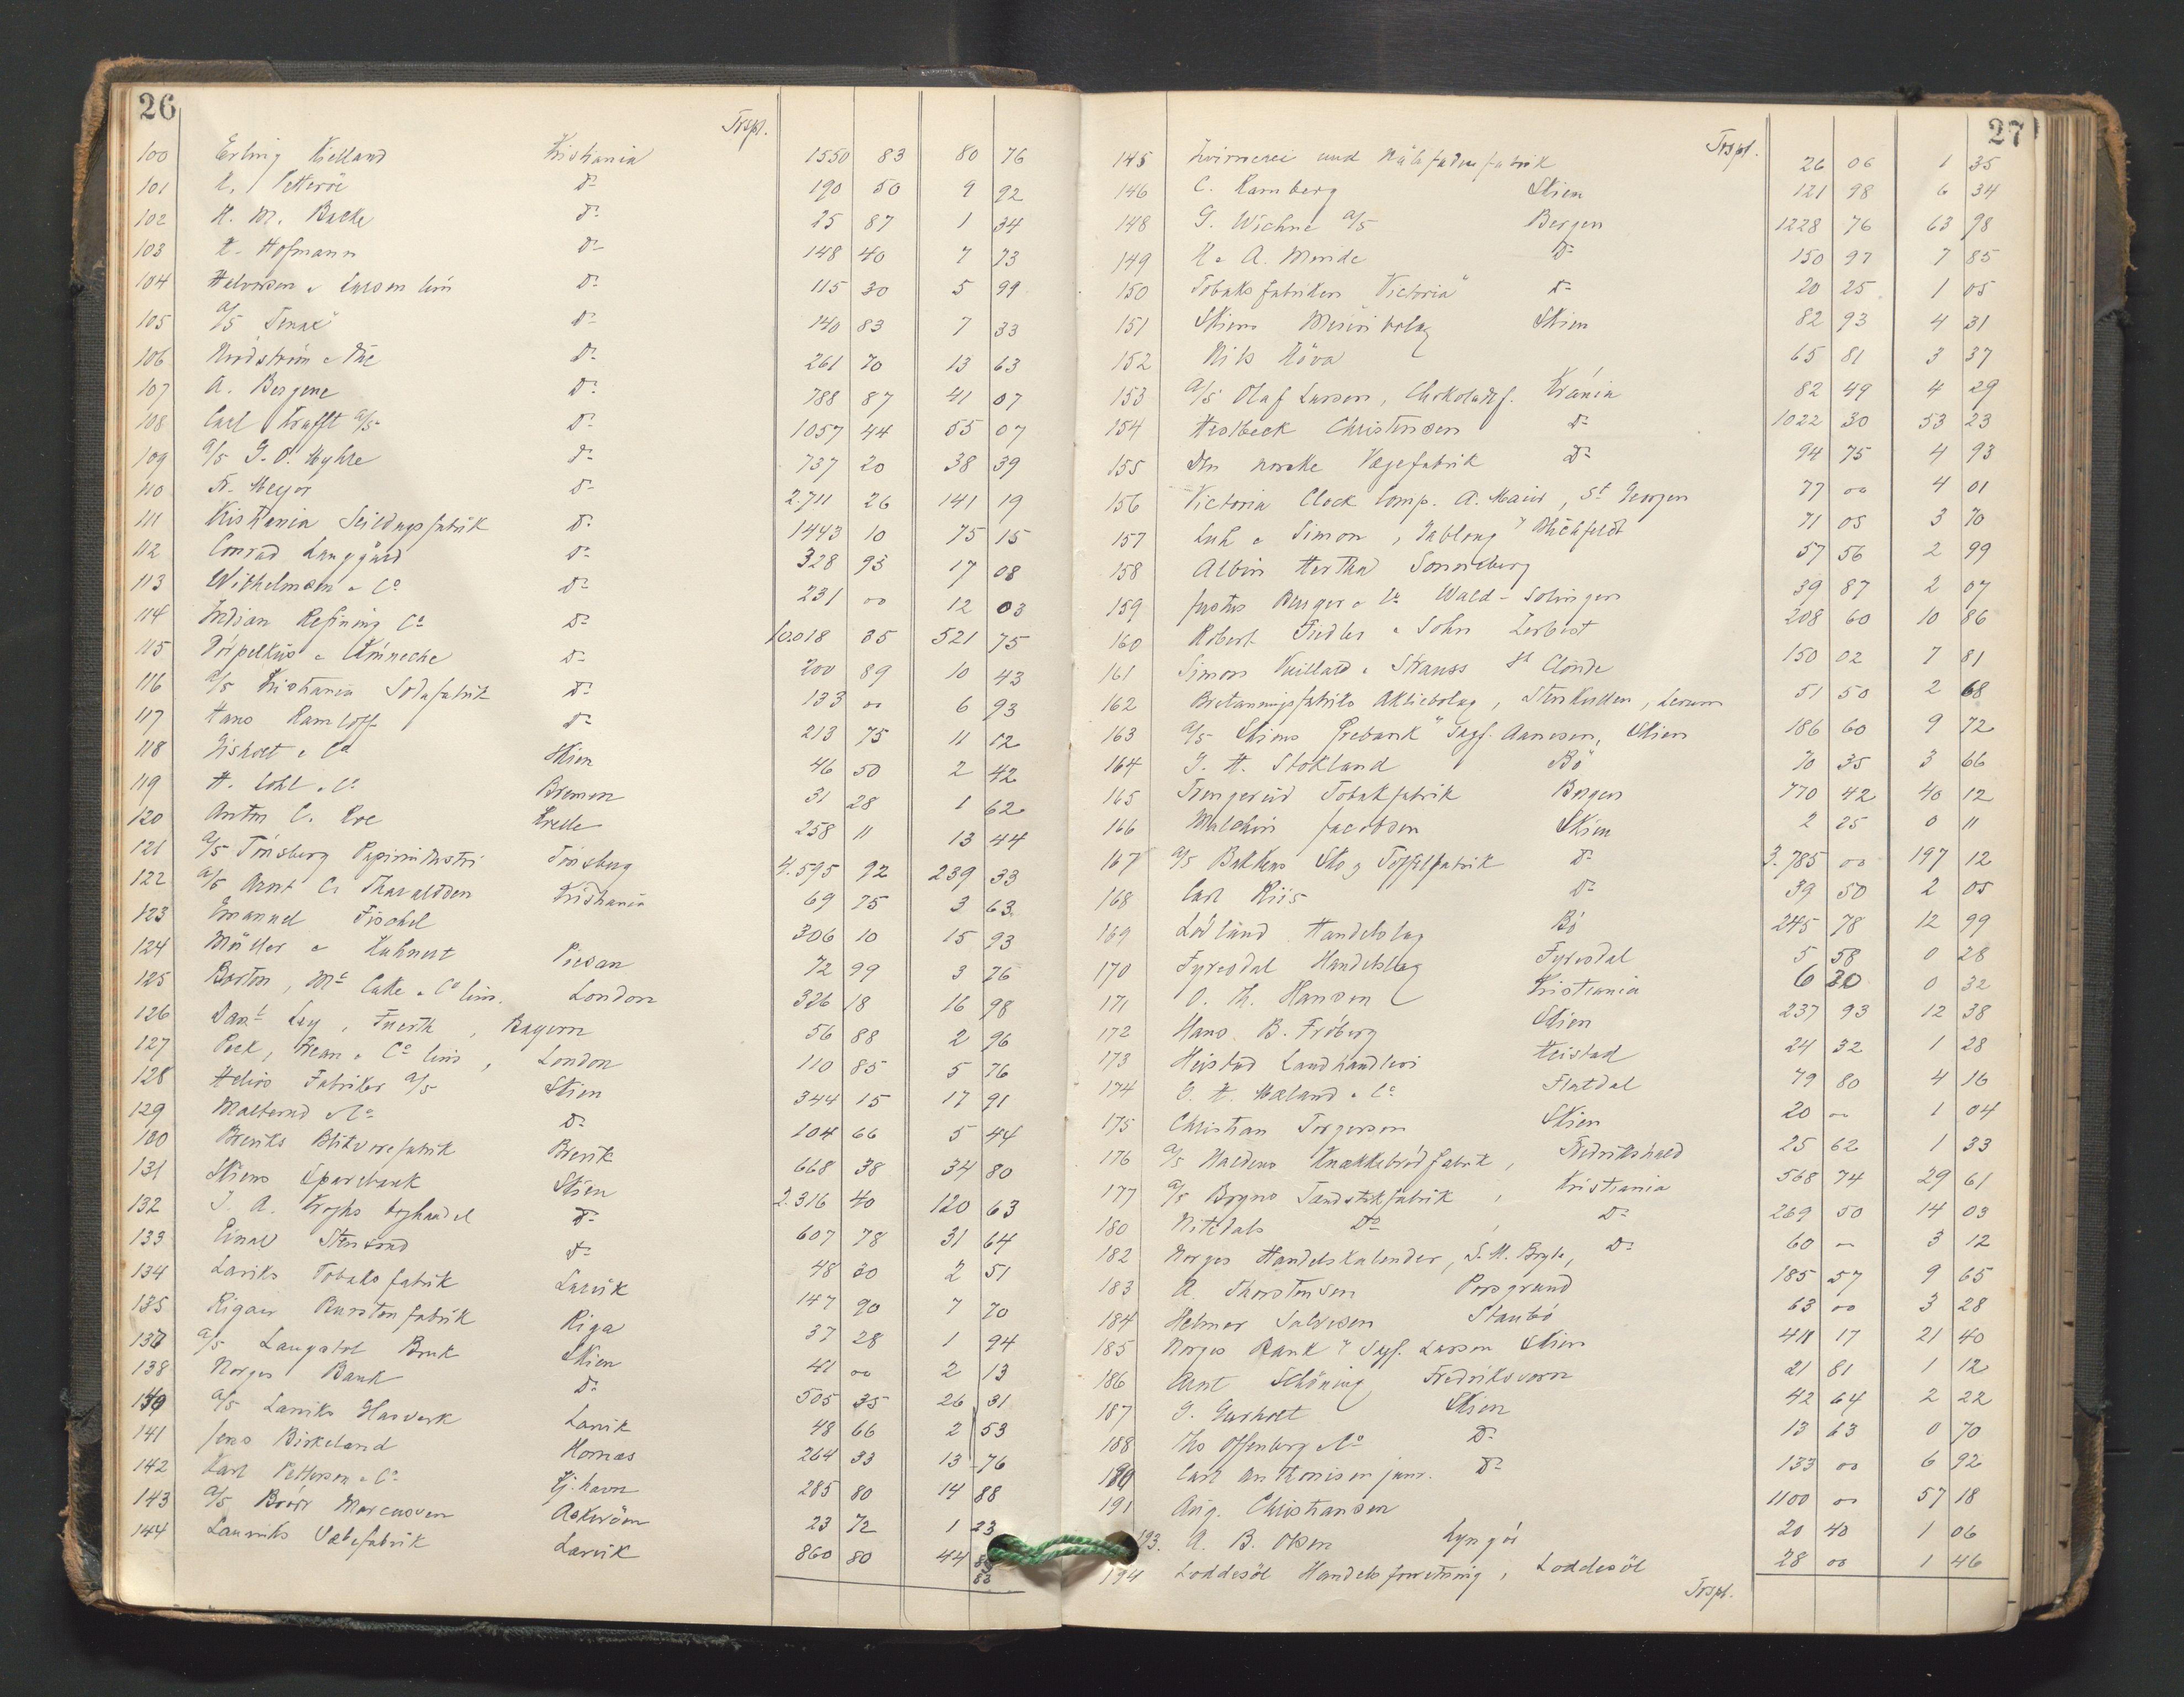 26
Trspt.
100 Erling Kielland Kristiania 1550 83 80 76
101 Petterøe Dº 190 50 9 92
102 H. M. Backe Dº 25 87 1 34
103 Hofmann Dº 148 40 7 73
104 Halvorsen & Larsen lim Dº 115 30 5 99
105 A/S "Tenax" Dº 140 83 7 33
106 Nordström & Dº 261 70 13 63
107 A. Bergene Dº 788 87 41 07
108 Carl Krafft A/S Dº 1057 44 55 07
109 A/S G. O. Myhre Dº 737 20 38 39
110 Fr. Meyer Dº 2.711 26 141 19
111 Kristiania Seildugsfabrik Dº 1443 10 75 15
112 Conrad Langgård Dº 328 93 17 08
113 Wilhelmsen & Cº Dº 231 00 12 03
114 Indian Refining Cº Dº 10.018 35 521 75
115 & Dº 200 89 10 43
116 A/S Kristiania Sodafabrik Dº 133 00 6 93
117 Hans Ramloff Dº 213 75 11 12
118 Gisholt & Co Skien 46 50 2 42
119 H. Cohl & Cº Bremen 31 28 1 62
120 Anton C. Ree 258 11 13 44
121 A/S Tönsberg Papirindustri Tönsberg 4.595 92 239 33
122 A/S Arnt C. Thavaldsen Kristiania 69 75 3 63
123 Emanuel Fischel 306 10 15 93
124 Müller & Kuhnert Piesan 72 99 3 76
125 Barton, Mc Cake & Co lim. London 326 18 16 98
126 Danl Ley, Fuerth, Bayern 56 88 2 96
127 Peek, Frean & Cº lim, London 110 85 5 76
128 Helios Fabriker A/S Skien 344 15 17 91
129 Malterud & Co Dº 104 66 5 44
130 Breviks Blikvarefabrik Brevik 668 38 34 80
131 Skiens Sparebank Skien 2.316 40 120 63
132 J. A. Kroghs boghandel Dº 607 78 31 64
133 Einar Stensrud Dº 48 30 2 51
134 Larviks Tobaksfabrik Larvik 147 90 7 70
135 Rigaer Bursten fabrik Riga 37 28 1 94
137 A/S Langatot Bruk Skien 41 00 2 13
138 Norges Bank Dº 505 35 26 31
140 A/S Larviks Glasverk Larvik 48 66 2 53
141 Jens Birkeland Hornæs 264 33 13 76
142 Karl Petterson & Cº Kj.havn 285 80 14 88
143 A/S Brødr Marcussen Askerøen 23 72 1 23
144 Laurviks Væbefabrik Larvik 860 80 44 83
83
27
Trspt.
145 Zwirnerei und Nähfadenfabrik 26 06 1 35
146 C. Ramberg Skien 121 98 6 34
148 G. Wiehne A/S Bergen 1228 76 63 98
149 H. & A. Minde Dº 150 97 7 85
150 Tobaksfabriken "Victoria" Dº 20 25 1 05
151 Skiens Meieribolag Skien 82 93 4 31
152 Nils Röva 65 81 3 37
153 A/S Olaf Larsen, Chokoladef. Kr.ania 82 49 4 29
154 Heslbeck Christensen Dº 1022 30 53 23
155 Den norske Vægefabrik Dº 94 75 4 93
156 Victoria Clock Comp. A. Maier, St. Georgen 77 00 4 01
157 Luh & Simon, Gablong 71 05 3 70
158 Albin Hertha Sonneberg 57 56 2 99
159 Justus Berger & Co Wald-Solingen 39 87 2 07
160 Robert Fiedler & Sohn Zerbst 208 60 10 86
161 Simon Vuillard & Strauss St Claude 150 02 7 81
162 Bretanningsfabriks Aktiebolag, Stenkullen, Lerum 51 50 2 68
163 A/S Skiens Privbank "Sagf. Aanesen, Skien 186 60 9 72
164 G. H. Stokland Bø 70 35 3 66
165 Trengereid Tobakfabrik Bergen 770 42 40 12
166 Malchus Jacobsen Skien 2 25 0 11
167 A/S Bakkens Sko og Töffelfabrik Dº 3.785 00 197 12
168 Carl Riis Dº 39 50 2 05
169 Lødland Handelslag Bø 245 78 12 99
170 Fyresdal Handelslag Fyresdal 5 58 0 28
171 O. Th. Hansen Kristiania 6 20 0 32
172 Hans B. Fröberg Skien 237 93 12 38
173 Heistad Landhandleri Heistad 24 32 1 28
174 G. H. Mæland & Cº Flatdal 79 80 4 16
175 Christian Torgersen Skien 20 00 1 04
176 A/S Haldens Knækkebrödfabrik, Fredrikshald 25 62 1 33
177 A/S Bryns Tændstikfabrik, Kristiania 568 74 29 61
180 Nitedals Dº, Dº 269 50 14 03
182 Norges Handelskalender, S. M. Bryde, Dº 60 00 3 12
183 A. Thorstensen Porsgrund 185 57 9 65
184 Helmer Salvesen Staubø 63 00 3 28
185 Norges Bank "Sagf. Larsen Skien 411 17 21 40
186 Arnt Schöning Fredriksvarn 21 81 1 12
187 G. Garholt Skien 42 64 2 22
188 Ths Offenberg & Co Dº 13 63 0 70
190 Carl Anthonisen junr. Dº 133 00 6 92
191 Aug. Christiansen 1100 00 57 18
193. A. B. Olsen Lyngör 20 40 1 06
194 Loddesöl Handelsforretning, Loddesöl 28 00 1 46
Trspt.